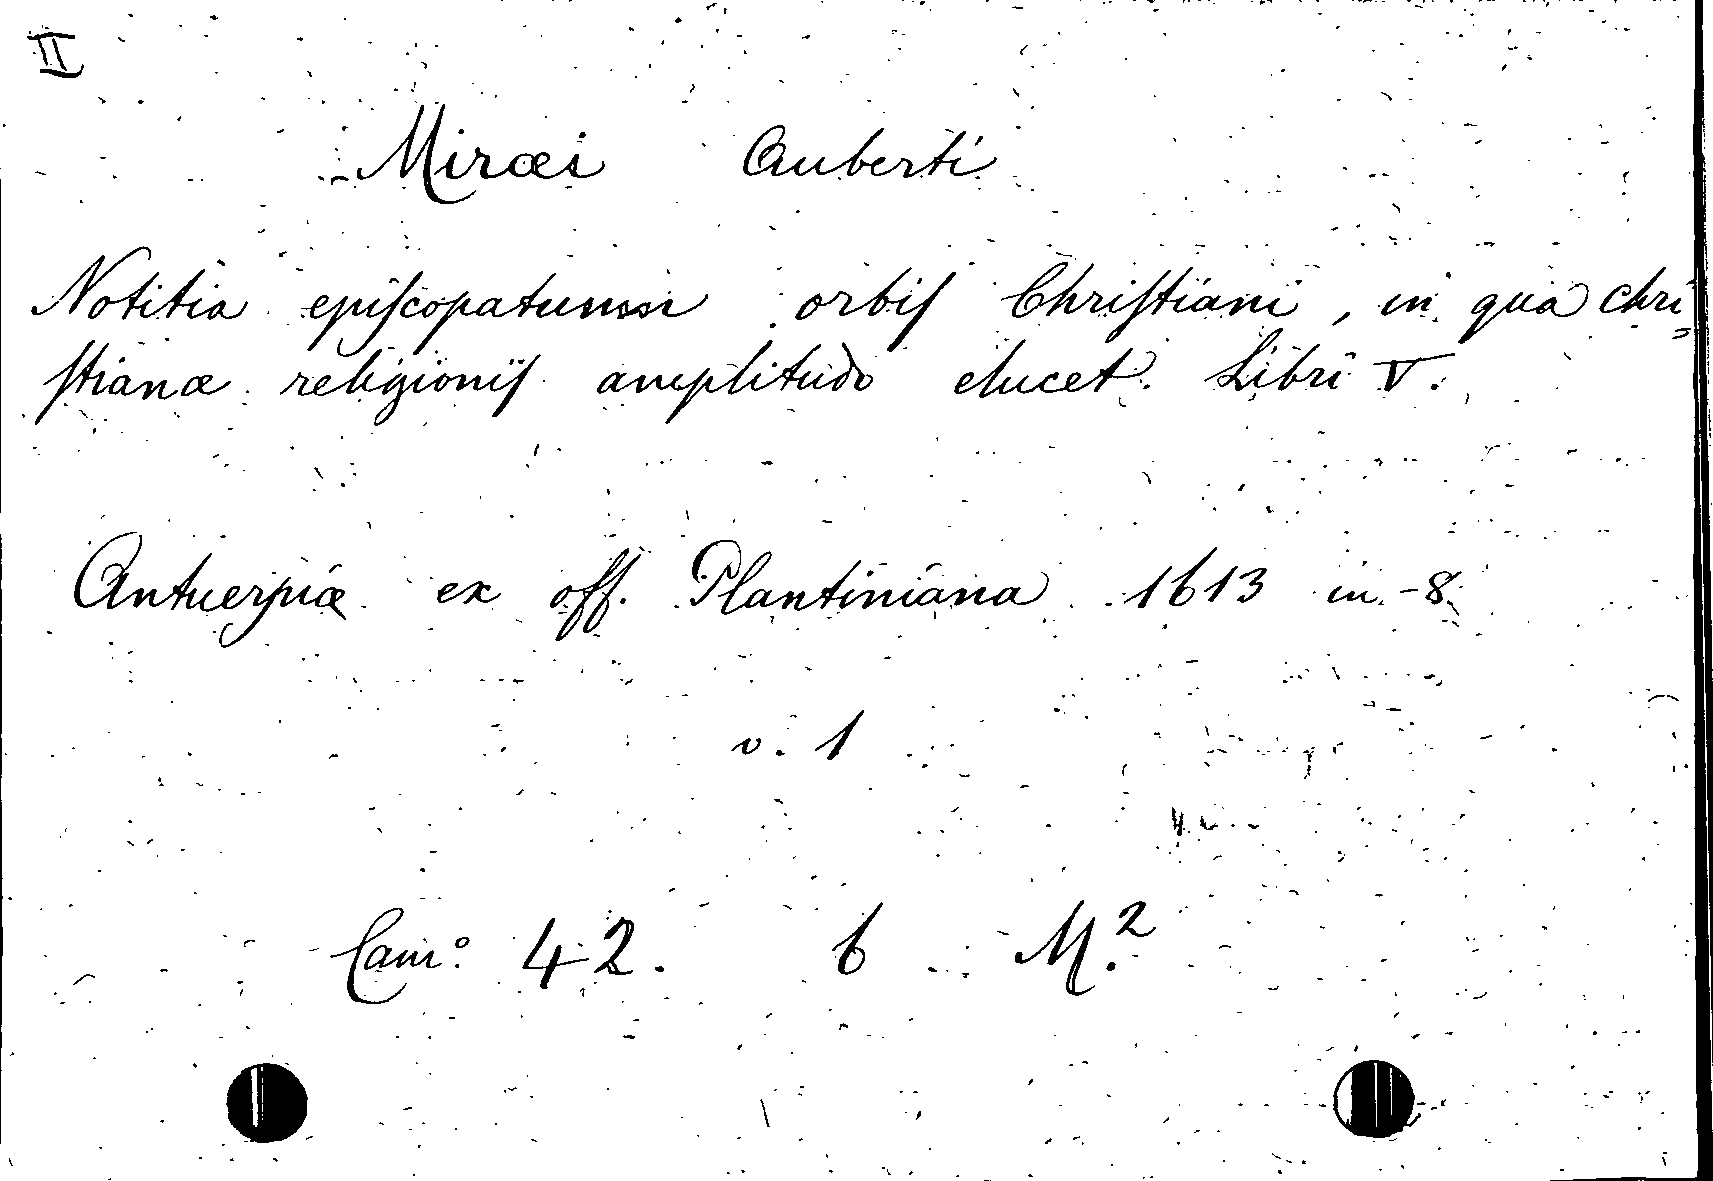 II
Miræi Auberti
Notitia epiſcopatuum orbiſ Chriſtiani, in qua chri=
ſtianæ religioniſ amplitudo elucet. Libri V.
Antuerpiæ ex off. Plantiniana 1613 in-8.
v. 1
Camº 42. 6 M.²